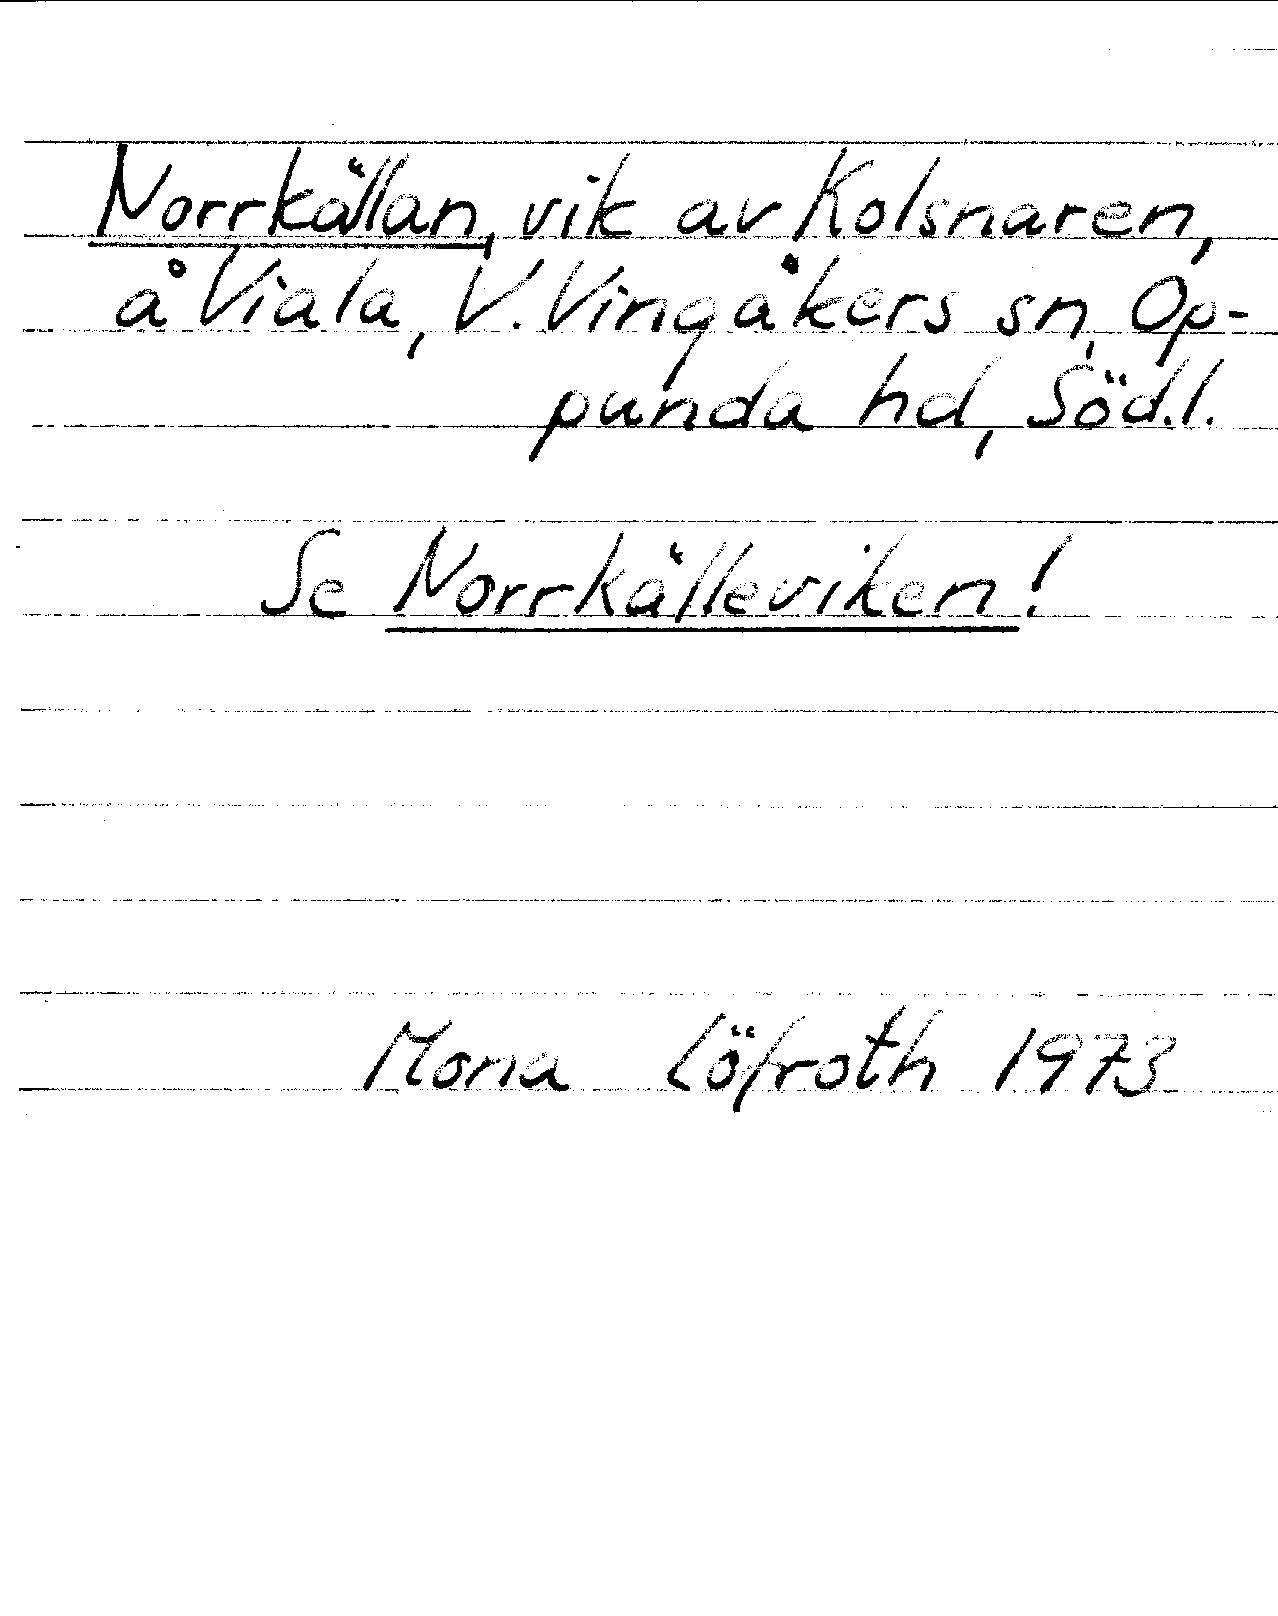 Norrkällan, vik av Kolsnaren,
å Viala, V. Vingåkers sn, Op-
punda hd, Söd.l.
Se Norrkälleviken!
Mona Löfroth 1973